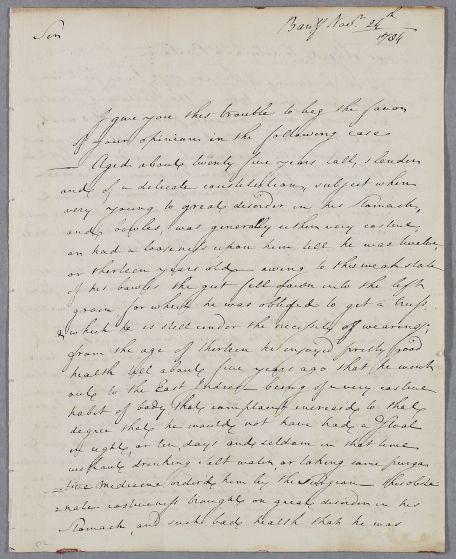 Banff Novr. 24th
1784
Sir
I give you this trouble to beg the favor
of your opinion in the following case
Aged about twenty five years tall, slender
and of a delicate constitution, subject when
very young to great disorder in his Stomach,
and bowles, was generally either very costive,
or had a looseness upon him till he was twelve
or thirteen years old – owing to this weak state
of his bowles the gut fell down into the left
groin for which he was obliged to get a truss,
& which he is still under the necessity of wearing,
from the age of thirteen he enjoyed pretty good
health till about five years ago that he went
out to the East Indies – being of a very costive
habit of body that complaint increased to that
degree that he would not have had a Stool
in eight, or ten days and seldom in that time
without drinking salt water, or taking some purga
-tive medicine orderd him by the surgeon – this obsti
-nate costiveness brought on great disorder in his
Stomach, and such bad health that he was